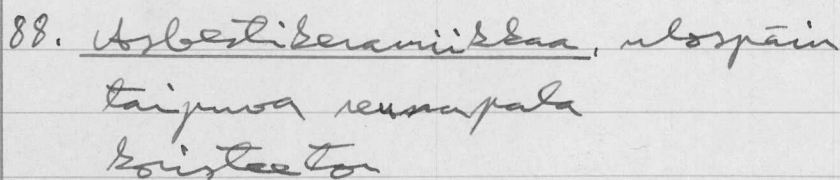 88. Asbestikeramiikkaa, ulospäin
taipuva reunapala
koristeeton